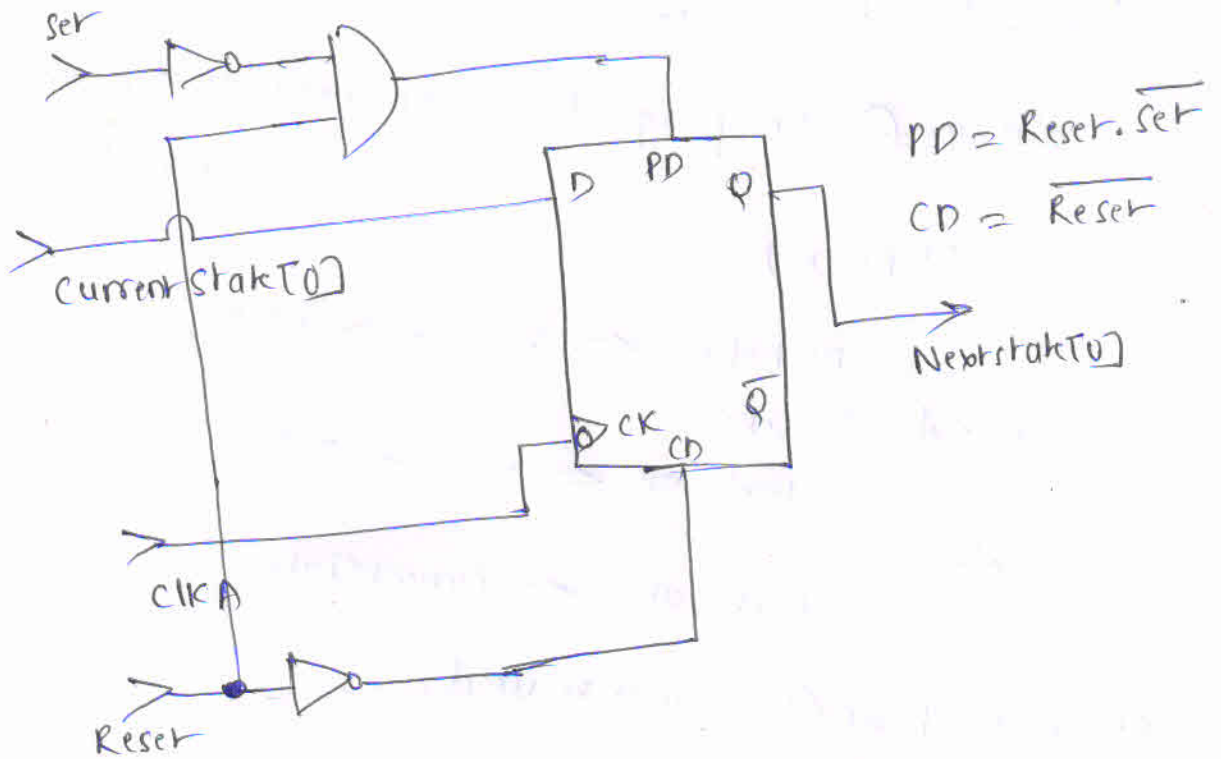 Set
PD = Reset. \overline{Set}
CD = \overline{Reset}
D
PD
Q
Current State[0]
Nextstate[0]
\overline{Q}
CK
CD
Clk A
Reset